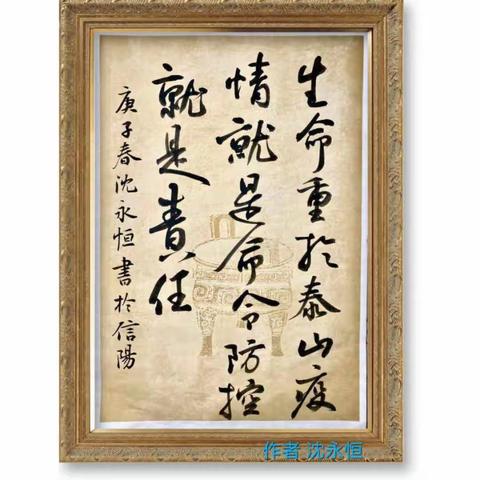 生命重於泰山疫
情就是命令防控
就是責任
庚子春沈永恒書於信陽
作者 沈永恒